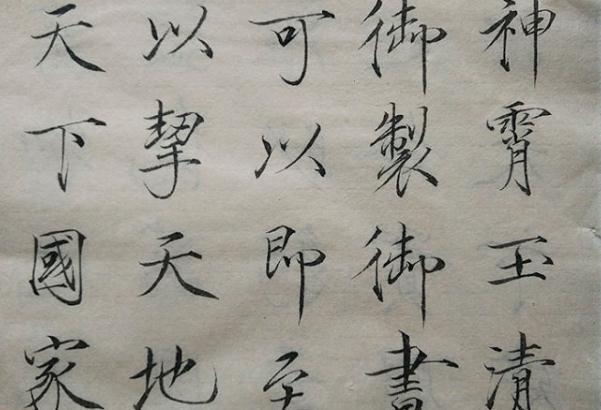 神霄玉清
御製御書
可以即至
以挈天地
天下國家